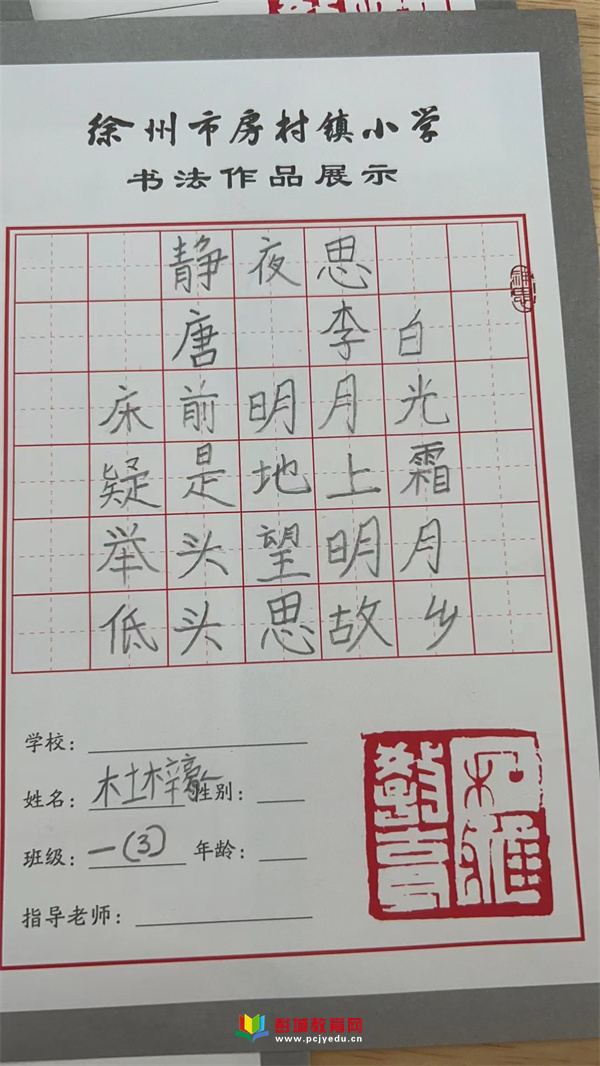 徐州市房村镇小学
书法作品展示
静夜思
唐 李白
床前明月光
疑是地上霜
举头望明月
低头思故乡
学校：
姓名：杜梓豪 性别：
班级：一(3) 年龄：
指导老师：
彭城教育网
www.pcjyedu.cn